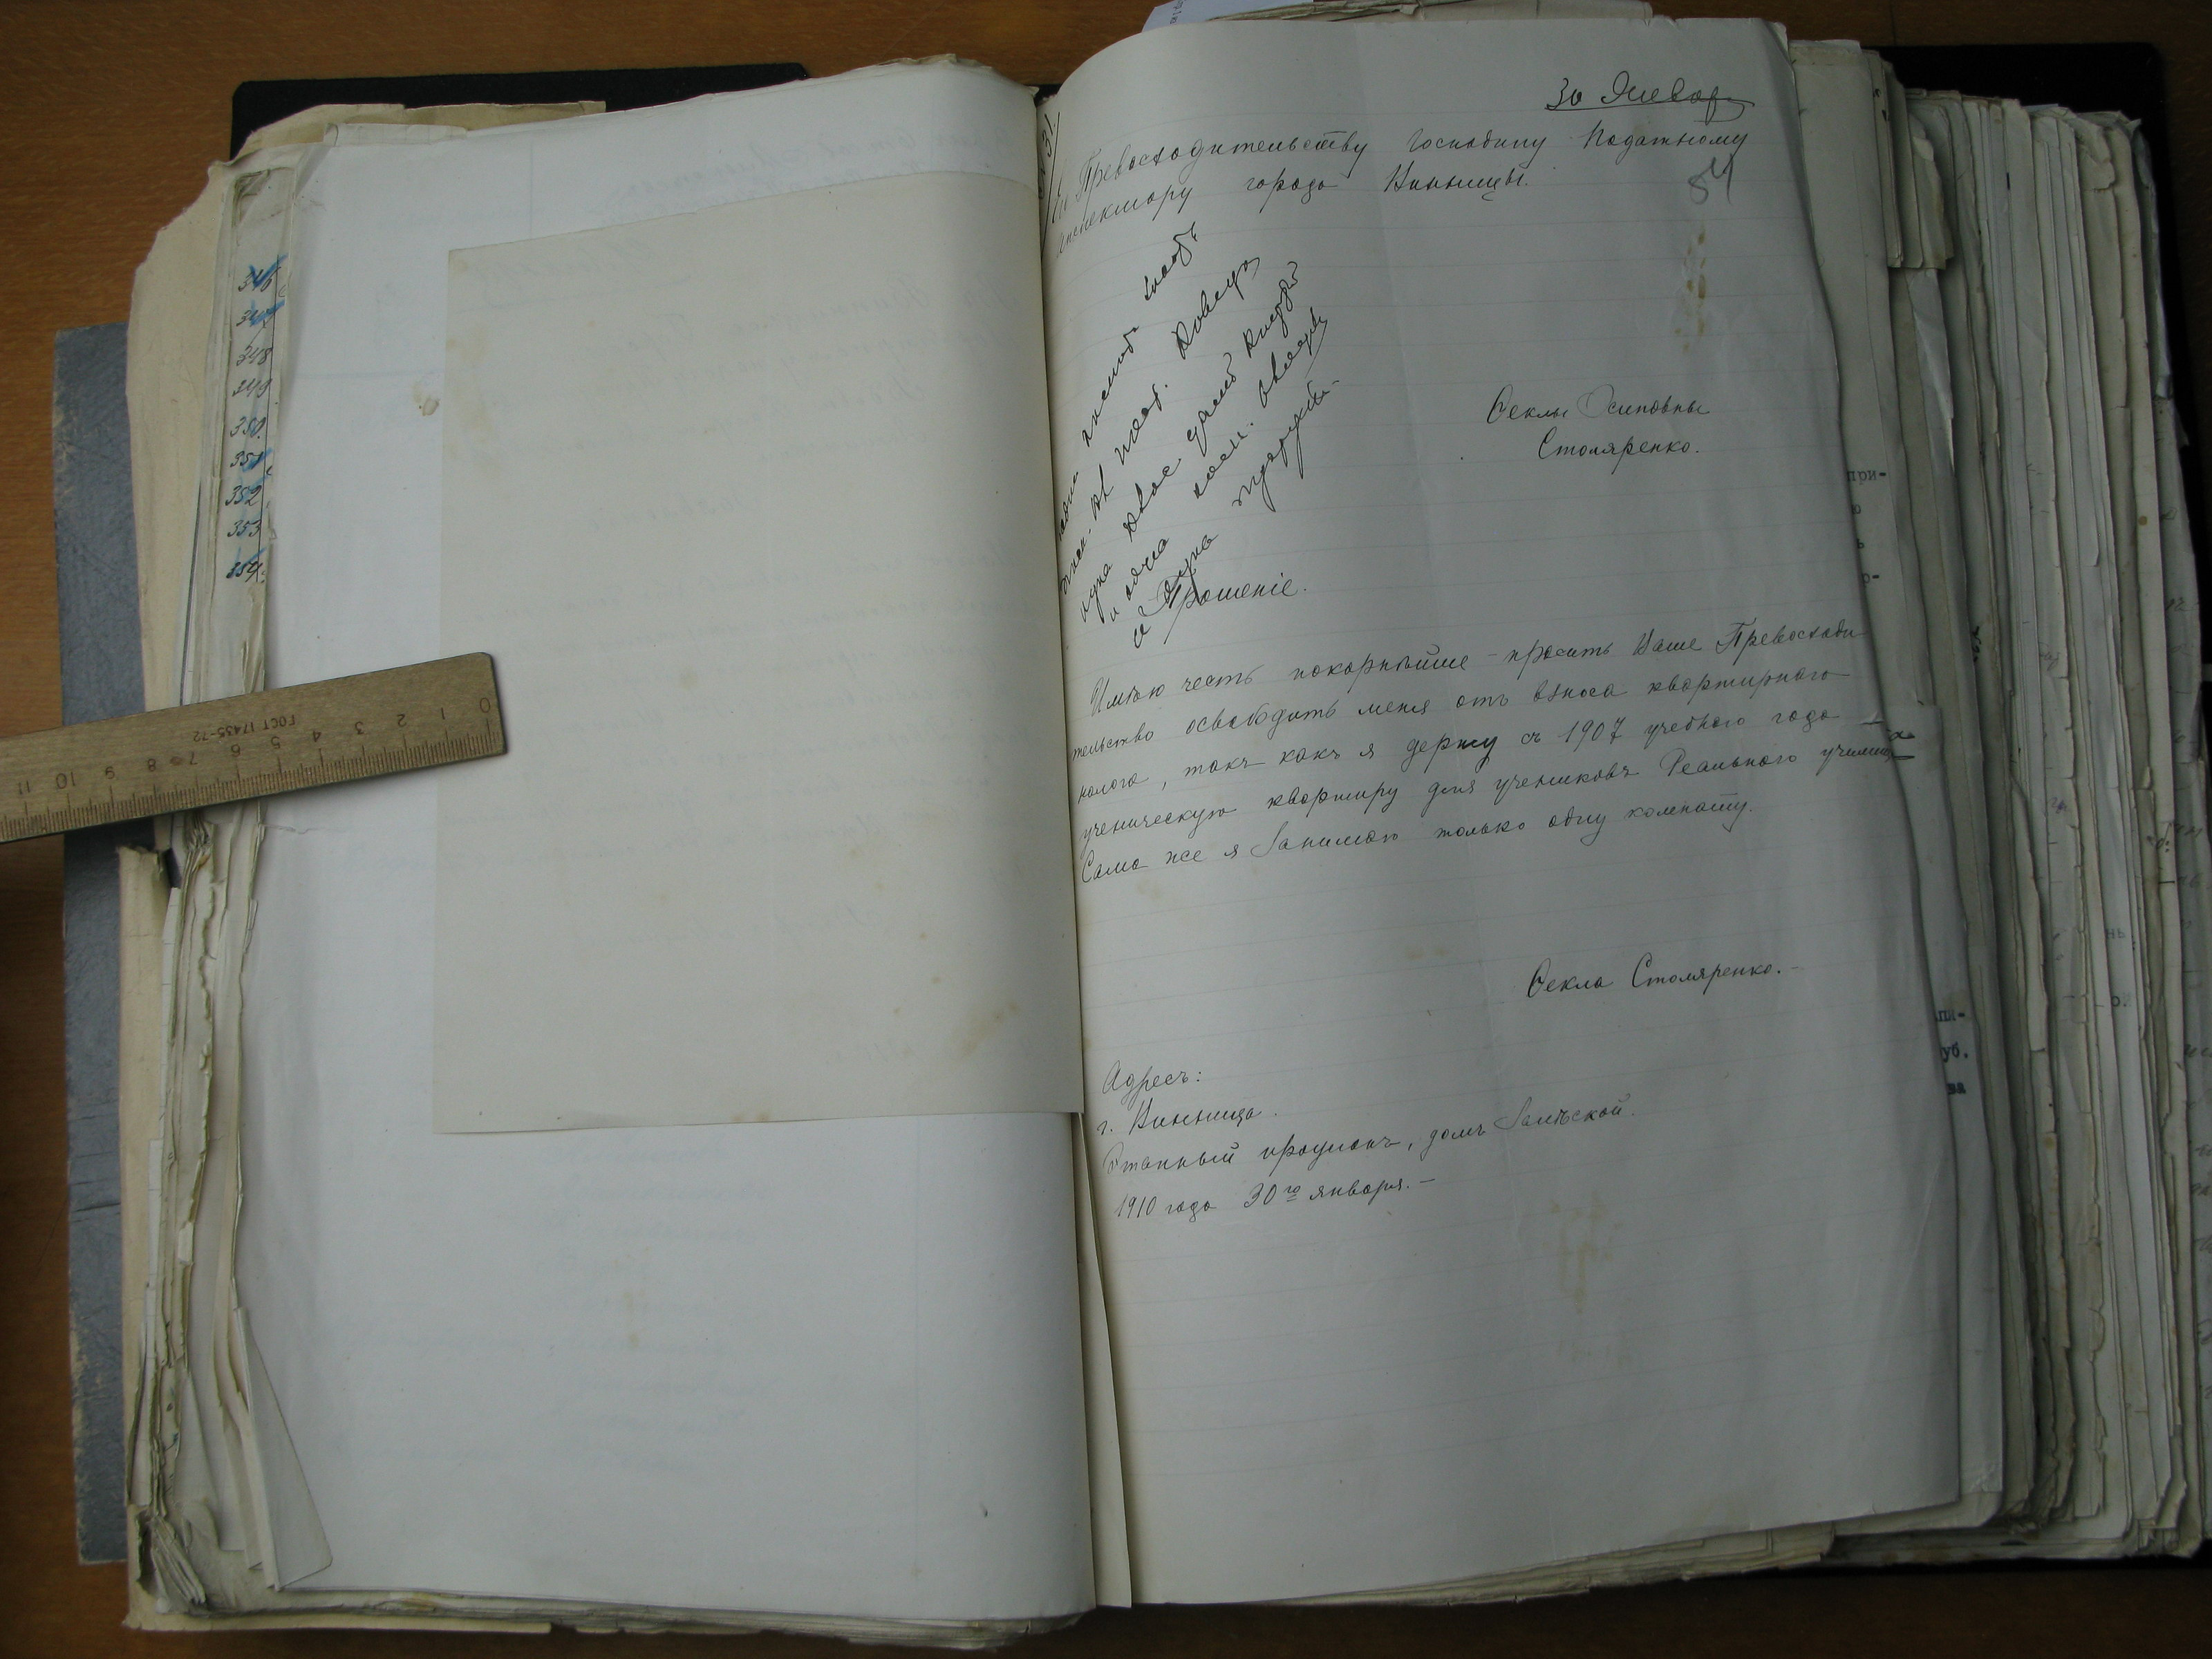 346
347
348
349
350.
351
352
353
354.
0 1 2 3 4 5 6 7 8 9 10 11
ГОСТ 17435-72
30 Январ
54
Превосходительству Господину Податному
инспектору города Винницы.
Феклы Осиповны
Столяренко.
Прошеніе.
Имѣю честь покорнѣйше просить Ваше Превосходи
тельство освободить меня отъ взноса квартирнаго
налога, такъ какъ я держу съ 1907 учебнаго года
ученическую квартиру для учениковъ Реальнаго училища
Сама же я занимаю только одну комнату.
Фекла Столяренко.-
Адресъ:
г. Винница.
Этапный проулокъ, домъ
1910 года 30го января.-
при-
уб.